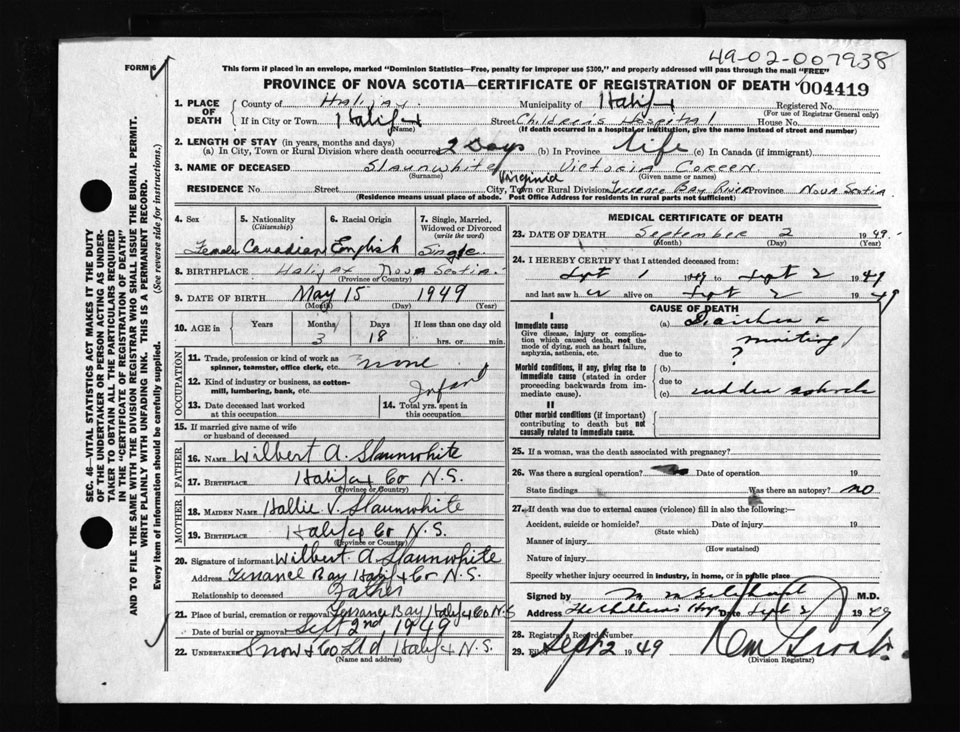 49-02-007938
FORM 6
This form if placed in an envelope, marked "Dominion Statistics—Free, penalty for improper use $300," and properly addressed will pass through the mail "FREE"
PROVINCE OF NOVA SCOTIA—CERTIFICATE OF REGISTRATION OF DEATH 004419
SEC. 46—VITAL STATISTICS ACT MAKES IT THE DUTY
OF THE UNDERTAKER OR PERSON ACTING AS UNDER-
TAKER TO OBTAIN ALL THE PARTICULARS REQUIRED
IN THE "CERTIFICATE OF REGISTRATION OF DEATH"
AND TO FILE THE SAME WITH THE DIVISION REGISTRAR WHO SHALL ISSUE THE BURIAL PERMIT.
WRITE PLAINLY WITH UNFADING INK. THIS IS A PERMANENT RECORD.
Every item of information should be carefully supplied. (See reverse side for instructions.)
1. PLACE OF DEATH
County of Halifax Municipality of Halifax Registered No.
(For use of Registrar General only)
If in City or Town Halifax Street Children's Hospital House No.
(Name) (If death occurred in a hospital or institution, give the name instead of street and number)
2. LENGTH OF STAY (in years, months and days)
(a) In City, Town or Rural Division where death occurred 2 Days (b) In Province Life (c) In Canada (if immigrant)
3. NAME OF DECEASED Slaunwhite Virginia Victoria Coreen
(Surname) (Given name or names)
RESIDENCE No. Street City, Town or Rural Division Terrence Bay River Province Nova Scotia
(Residence means usual place of abode. Post Office Address for residents in rural parts not sufficient)
4. Sex Female
5. Nationality (Citizenship) Canadian
6. Racial Origin English
7. Single, Married, Widowed or Divorced (write the word) Single
8. BIRTHPLACE Halifax Nova Scotia
(Province or Country)
9. DATE OF BIRTH May 15 1949
(Month) (Day) (Year)
10. AGE in Years Months 3 Days 18 If less than one day old
hrs. or min.
OCCUPATION
11. Trade, profession or kind of work as spinner, teamster, office clerk, etc. none
12. Kind of industry or business, as cotton-mill, lumbering, bank, etc. Infant
13. Date deceased last worked at this occupation
14. Total yrs. spent in this occupation
15. If married give name of wife or husband of deceased
FATHER
16. NAME Wilbert A. Slaunwhite
17. BIRTHPLACE Halifax Co N.S.
(Province or Country)
MOTHER
18. MAIDEN NAME Hallie V. Slaunwhite
19. BIRTHPLACE Halifax Co N.S.
(Province or Country)
20. Signature of informant Wilbert A. Slaunwhite
Address Terrance Bay Halifax Co N.S.
Relationship to deceased Father
21. Place of burial, cremation or removal Terrance Bay Halifax Co N.S
Date of burial or removal Sept 2nd 1949
22. UNDERTAKER Snow & Co Ltd Halifax N.S.
(Name and address)
MEDICAL CERTIFICATE OF DEATH
23. DATE OF DEATH September 2 1949.
(Month) (Day) (Year)
24. I HEREBY CERTIFY that I attended deceased from:
Sept 1 1949 to Sept 2 1949
and last saw her alive on Sept 2 1949
CAUSE OF DEATH
I
Immediate cause
Give disease, injury or complication which caused death, not the mode of dying, such as heart failure, asphyxia, asthenia, etc.
(a) Diarrhea &
due to
?
Morbid conditions, if any, giving rise to immediate cause (stated in order proceeding backwards from immediate).
(b)
due to
(c) sudden
II
Other morbid conditions (if important) contributing to death but not causally related to immediate cause.
25. If a woman, was the death associated with pregnancy?
26. Was there a surgical operation? Date of operation 19
State findings Was there an autopsy? no
27. If death was due to external causes (violence) fill in also the following:—
Accident, suicide or homicide? Date of injury 19
(State which)
Manner of injury
(How sustained)
Nature of injury
Specify whether injury occurred in industry, in home, or in public place
Signed by M.D.
Address Date Sept 2 1949
28. Registrar's Record Number
29. Filed Sept 2 1949
(Division Registrar)